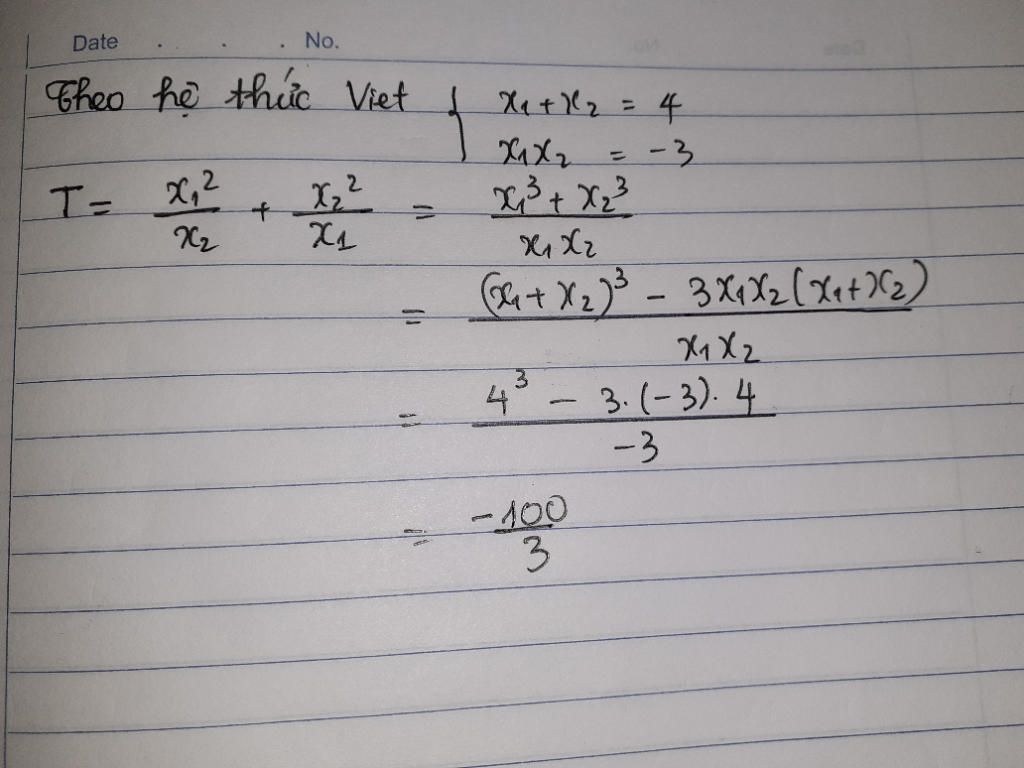 Date . . . No.
Theo hệ thức Viet { x₁ + x₂ = 4
x₁x₂ = -3
T = x₁²/x₂ + x₂²/x₁ = (x₁³ + x₂³)/(x₁x₂)
= ((x₁ + x₂)³ - 3x₁x₂(x₁+x₂))/(x₁x₂)
= (4³ - 3.(-3).4)/(-3)
= -100/3